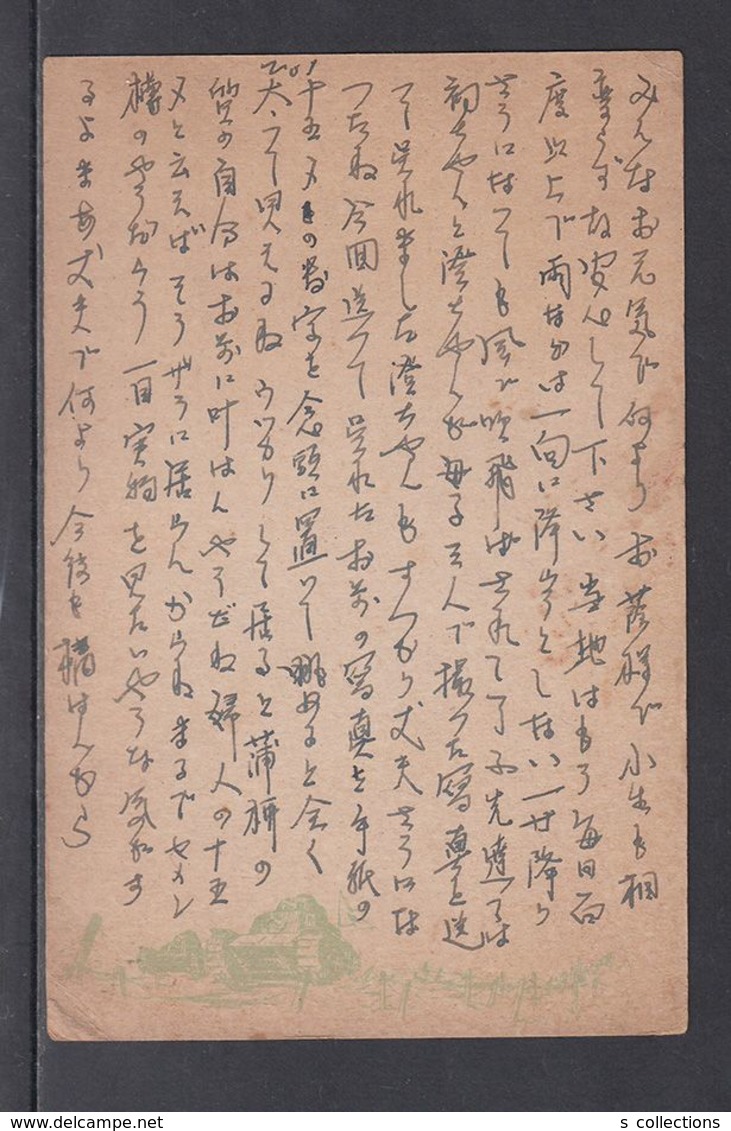 みんなお元気で何より お蔭様で小生も相
変らず故安心して下さい 当地はもう毎日百
度以上で雨なぞは一向に降らうとしない 一寸降り
さうになっても風で吹飛ばされて了ふ 先達ては
初ちゃんと澄ちゃんが母子三人で撮った写真を送
って呉れました 澄ちゃんもすっかり丈夫さうにな
ったね 今回送って呉れたお前の写真を手紙の
十五〆の数字を念頭に置いて眺めると全く
太って見えるね うっかりして居ると蒲柳の
質の自分はお前に叶はんやうだね 婦人の十五
〆と云へばそうザラに居らんからね まるでセメン
樽のやうだらう 一目実物を見たいやうな気がす
るよ まあ丈夫で何より 今後も
s collections